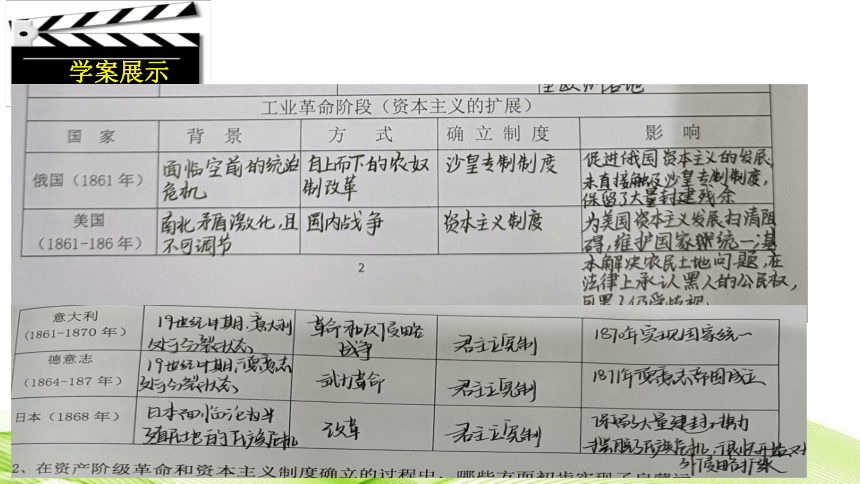 学案展示
工业革命阶段（资本主义的扩展）
国 家 背 景 方 式 确 立 制 度 影 响
俄国（1861 年） 面临空前的统治危机 自上而下的农奴制改革 沙皇专制制度 促进俄国资本主义的发展，未直接触及沙皇专制制度，保留了大量封建残余
美国（1861-186 年） 南北矛盾激化，且不可调节 国内战争 资本主义制度 为美国资本主义发展扫清阻碍，维护国家统一；基本解决农民土地问题，在法律上承认黑人的公民权，
2
意大利（1861-1870 年） 19世纪中期，意大利处于分裂状态 革命和反侵略战争 君主立宪制 1870年实现国家统一
德意志（1864-187 年） 19世纪中期，德意志处于分裂状态 武力革命 君主立宪制 1871年德意志帝国成立
日本（1868 年） 日本面临沦为半殖民地的民族危机 改革 君主立宪制 保留了大量封建势力 摆脱了民族危机，很快开始对外侵略扩张
2、在资产阶级革命和资本主义制度确立的过程中，哪些方面初步实现了启蒙运